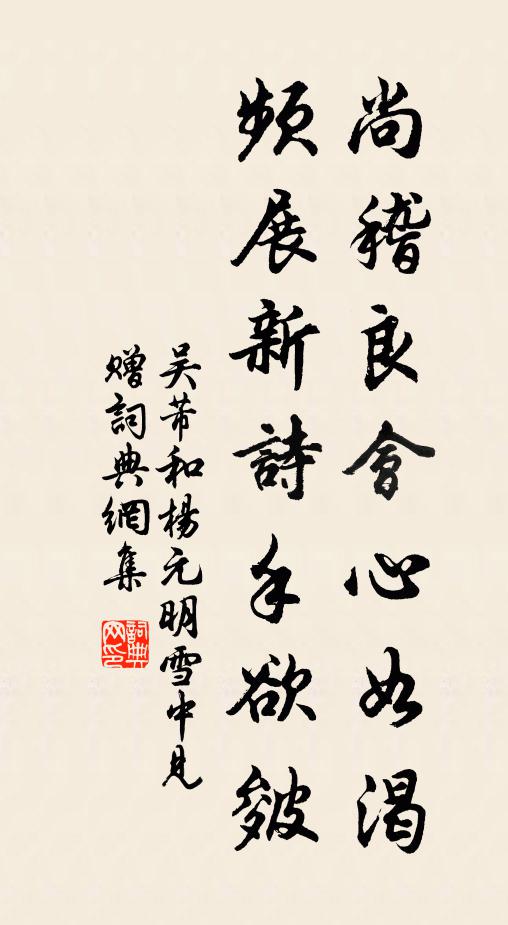 尚稽良會心如渴
頻展新詩手欲皴
吴芾和楊元明雪中見
贈詞典網集
詞典网印